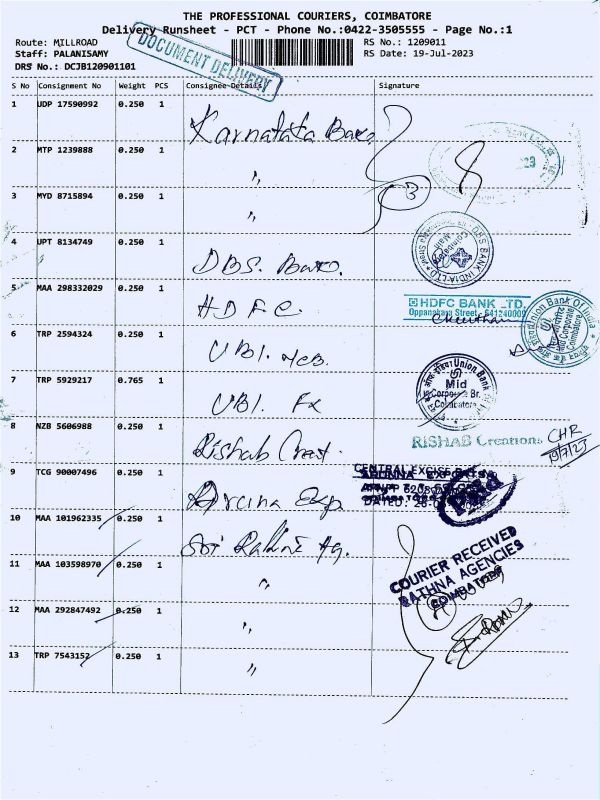 THE PROFESSIONAL COURIERS, COIMBATORE
Delivery Runsheet - PCT - Phone No.:0422-3505555 - Page No.:1
Route: MILLROAD
RS No.: 1209011
Staff: PALANISAMY
RS Date: 19-Jul-2023
DRS No.: DCJB120901101
DOCUMENT DELIVERY
S No Consignment No Weight PCS Consignee Details Signature
1 UDP 17590992 0.250 1 Karnataka Bank
2 MTP 1239888 0.250 1 "
3 MYD 8715894 0.250 1 "
3
4 UPT 8134749 0.250 1 DBS. Bank.
DBS BANK INDIA LTD
5 MAA 298332029 0.250 1 HDFC
HDFC BANK LTD.
Oppanakara Street, 641240009
6 TRP 2594324 0.250 1 UBI. MCB
Union Bank Of India
7 TRP 5929217 0.765 1 UBI. FX
Union Bank
Mid
Corporate Br.
Coimbatore
8 NZB 5606988 0.250 1 Rishab Creat.
RISHAB Creations
CHR
19/7/23
9 TCG 90007496 0.250 1 Exp.
10 MAA 101962335 0.250 1 Sri Rathna Ag.
11 MAA 103598970 0.250 1 "
COURIER RECEIVED
RATHNA AGENCIES
COIMBATORE
12 MAA 292847492 0.250 1 "
13 TRP 7543152 0.250 1 "